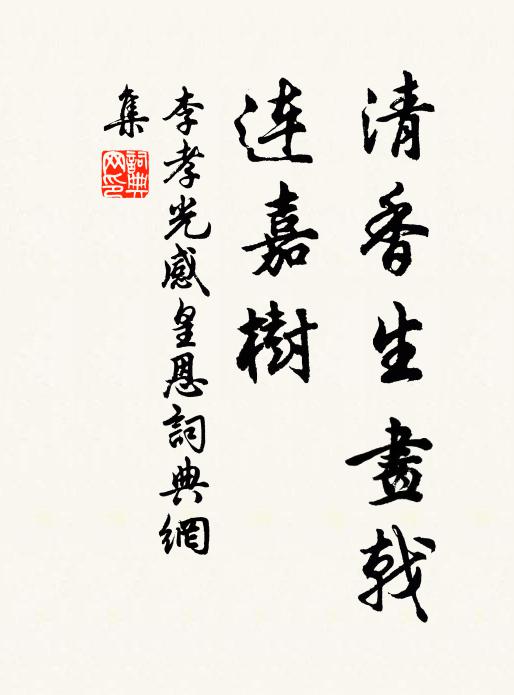 清香生畫戟
连嘉樹
李孝光感皇恩詞典網
集
詞典
网印